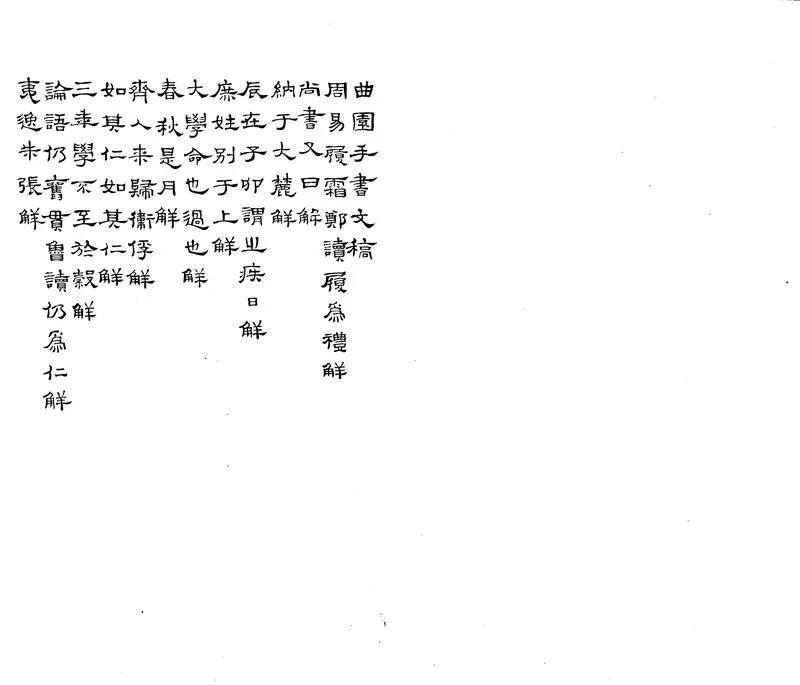 曲園手書文稿
周易履霜鄭讀履爲禮解
尚書又曰解
納于大麓解
辰在子卯謂之疾日解
庶姓別于上解
大學命也過也解
春秋是月解
齊人來歸衛俘解
如其仁如其仁解
三年學不至於穀解
論語仍舊貫魯讀仍爲仁解
夷逸朱張解